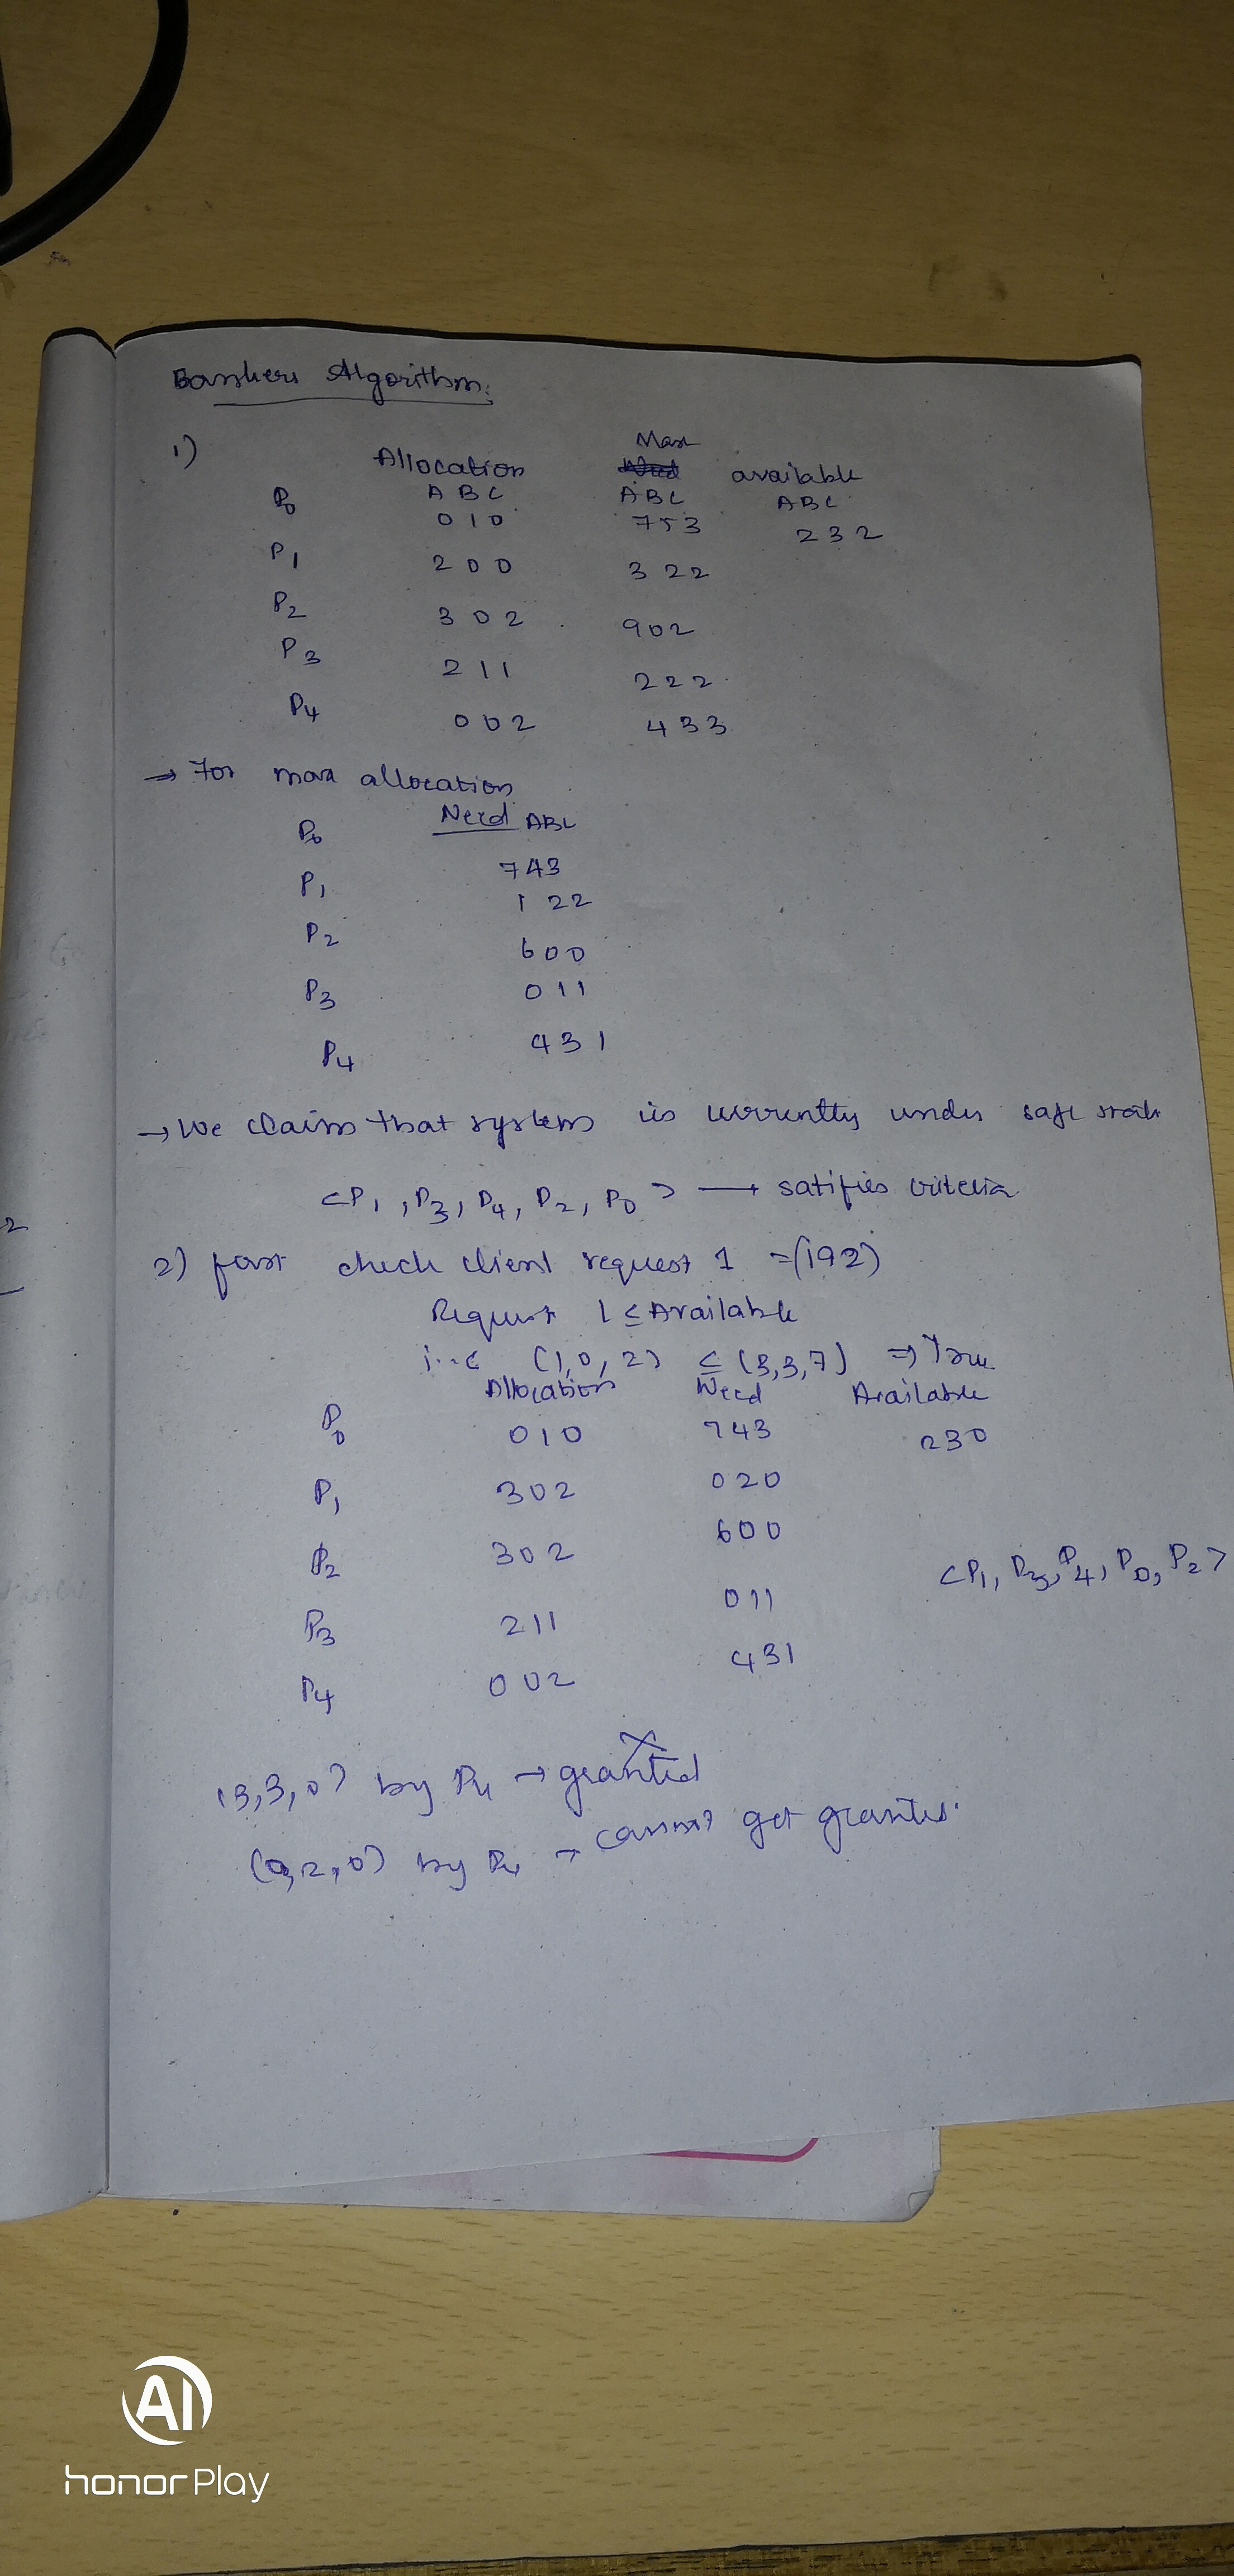 Bankers Algorithm:
1) Allocation Max available
P0 ABC ABC ABC
010 753 232
P1 200 322
P2 302 902
P3 211 222
P4 002 433
→ For max allocation
P0 Need ABC
743
P1 122
P2 600
P3 011
P4 431
→ We claim that system is currently under safe state
<P1, P3, P4, P2, P0> → satifies criteria
2) check client request 1 =(192)
Request 1 ≤ Available
i.e (1,0,2) ≤ (3,3,7) ⇒ True
Allocation Need Available
P0 010 743 230
P1 302 020
P2 302 600
<P1, P3, P4, P0, P2>
P3 211 011
P4 002 431
(3,3,0) by P4 → granted
(0,2,0) by → cannot get granted.
AI
honor Play